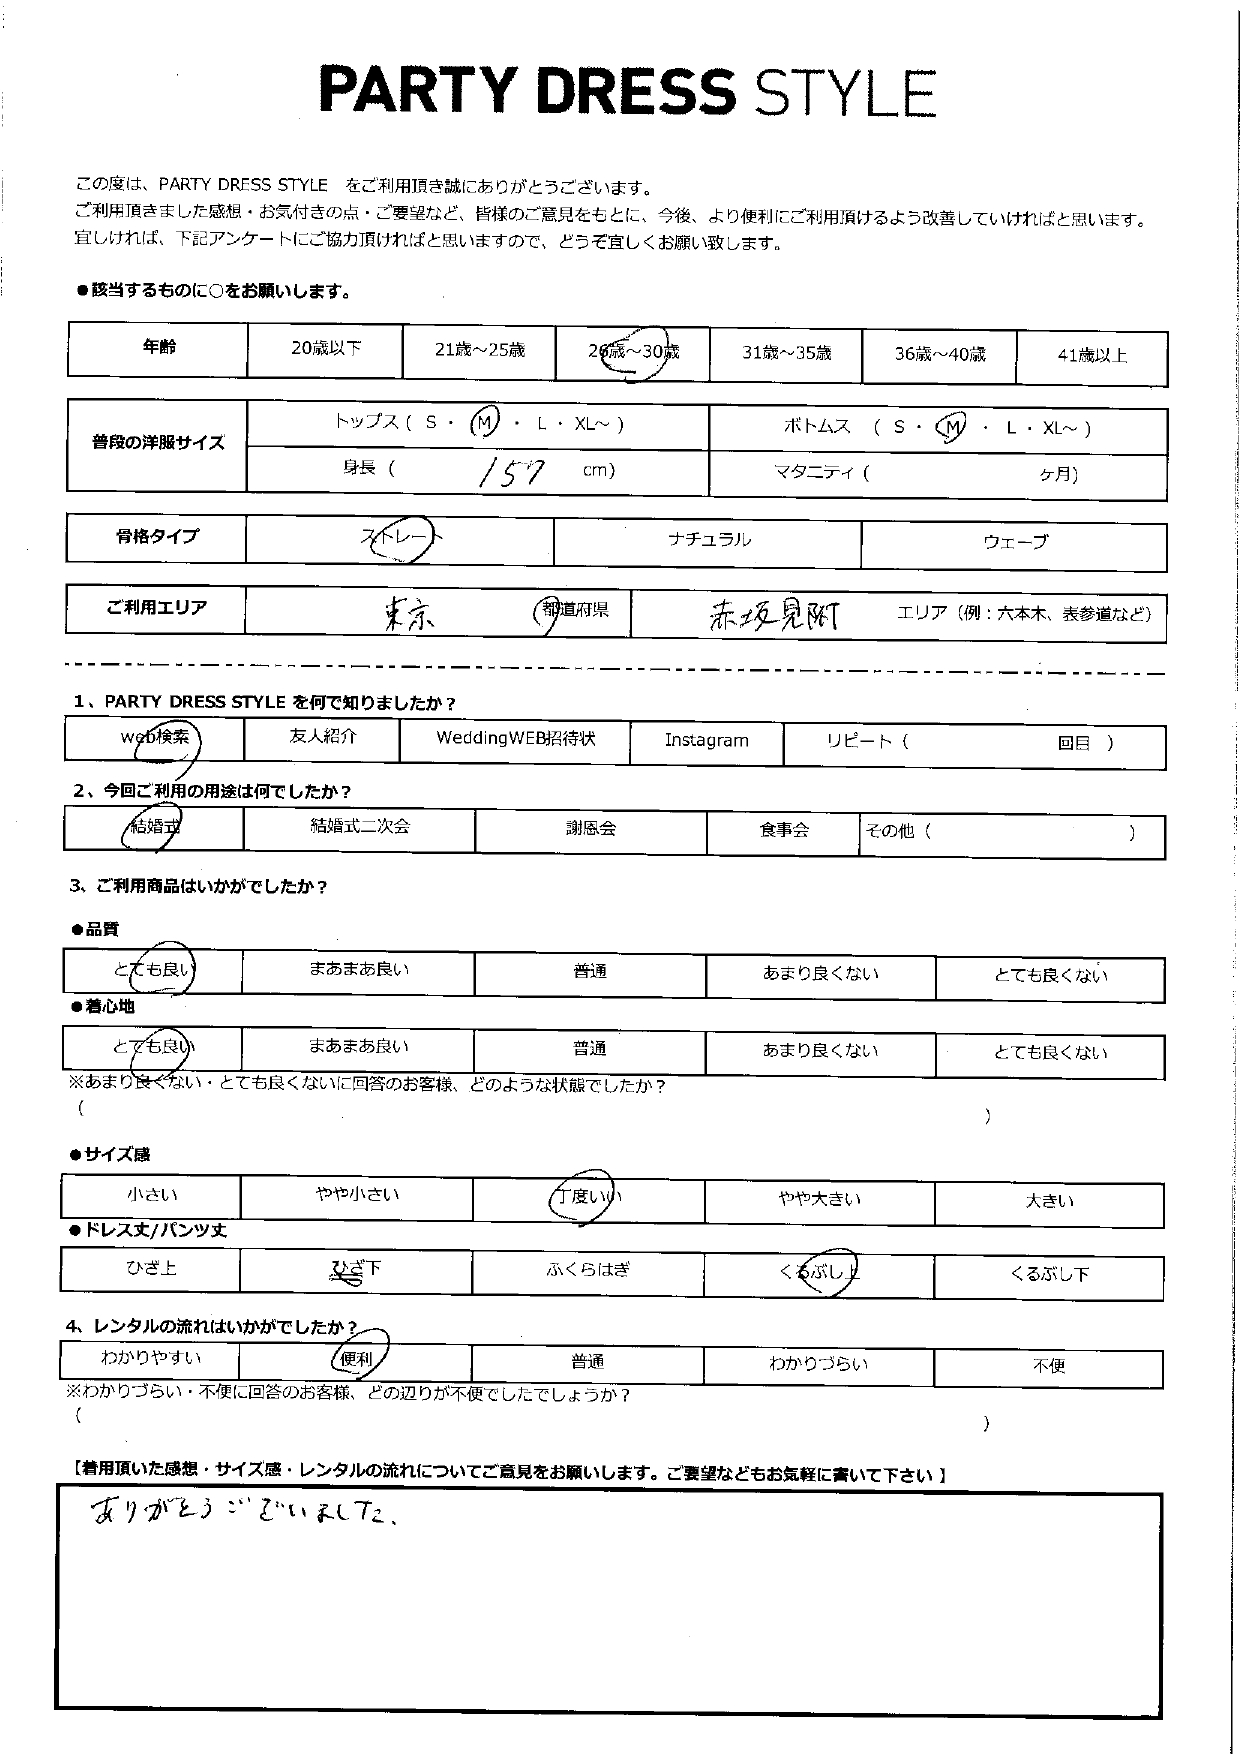 PARTY DRESS STYLE
この度は、PARTY DRESS STYLE をご利用頂き誠にありがとうございます。
ご利用頂きました感想・お気付きの点・ご要望など、皆様のご意見をもとに、今後、より便利にご利用頂けるよう改善していければと思います。
宜しければ、下記アンケートにご協力頂ければと思いますので、どうぞ宜しくお願い致します。
●該当するものに○をお願いします。
年齢 20歳以下 21歳～25歳 26歳～30歳 31歳～35歳 36歳～40歳 41歳以上
普段の洋服サイズ トップス ( S ・ M ・ L ・ XL～ ) ボトムス ( S ・ M ・ L ・ XL～ )
身長 ( 157 cm) マタニティ ( ヶ月)
骨格タイプ ストレート ナチュラル ウェーブ
ご利用エリア 東京 都道府県 赤坂見附 エリア (例：六本木、表参道など)
1、PARTY DRESS STYLE を何で知りましたか？
web検索 友人紹介 WeddingWEB招待状 Instagram リピート ( 回目 )
2、今回ご利用の用途は何でしたか？
結婚式 結婚式二次会 謝恩会 食事会 その他 ( )
3、ご利用商品はいかがでしたか？
●品質
とても良い まあまあ良い 普通 あまり良くない とても良くない
●着心地
とても良い まあまあ良い 普通 あまり良くない とても良くない
※あまり良くない・とても良くないに回答のお客様、どのような状態でしたか？
( )
●サイズ感
小さい やや小さい 丁度いい やや大きい 大きい
●ドレス丈/パンツ丈
ひざ上 ひざ下 ふくらはぎ くるぶし上 くるぶし下
4、レンタルの流れはいかがでしたか？
わかりやすい 便利 普通 わかりづらい 不便
※わかりづらい・不便に回答のお客様、どの辺りが不便でしたでしょうか？
( )
【着用頂いた感想・サイズ感・レンタルの流れについてご意見をお願いします。ご要望などもお気軽に書いて下さい】
ありがとうございました。